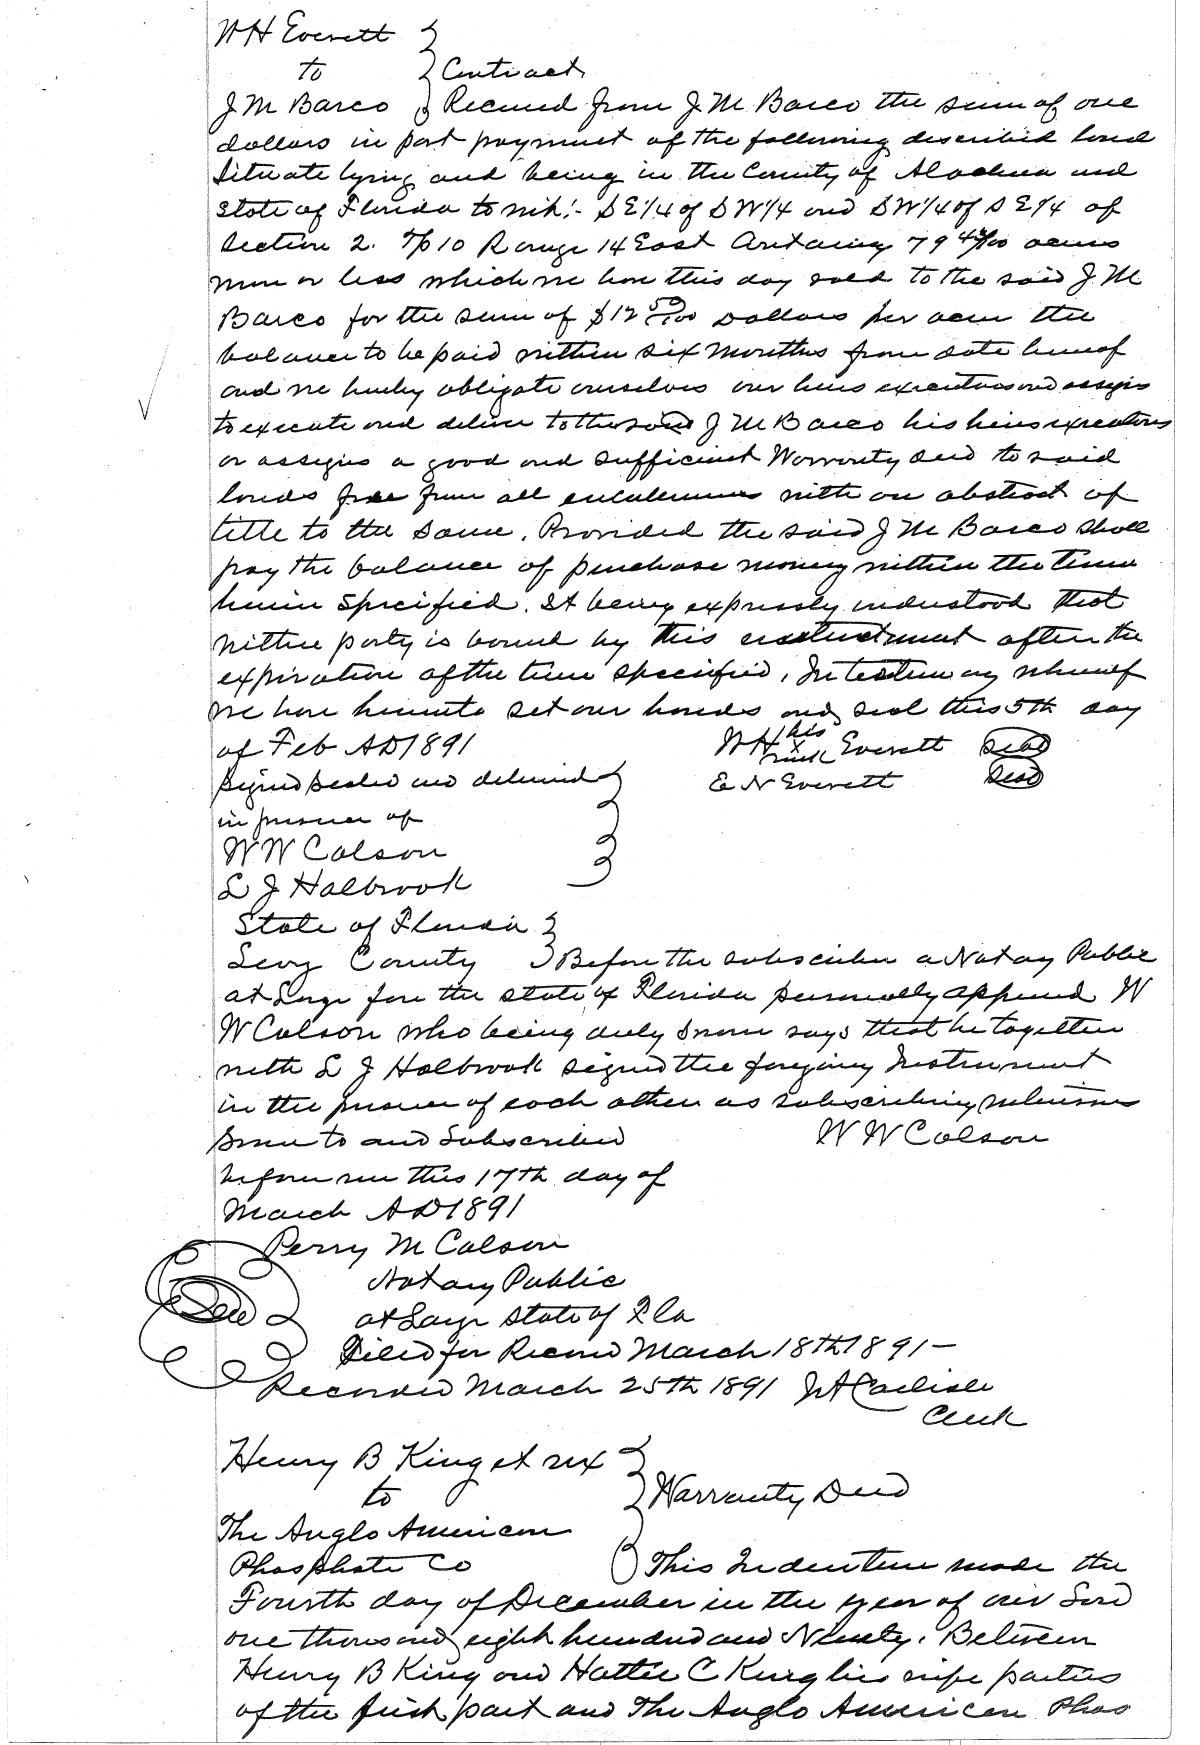 W H Everett
to } Contract
J M Barco } Received from J M Barco the sum of one
dollars in part payment of the following described land
Situate lying and being in the County of Alachua and
State of Florida to wit:- S E 1/4 of S W 1/4 and S W 1/4 of S E 1/4 of
Section 2. Tp 10 Range 14 East Containing 79 acres
more or less which we have this day sold to the said J M
Barco for the sum of $12 50/100 Dollars per acre the
balance to be paid within six months from date hereof
and we hereby obligate ourselves our heirs executors and assigns
to execute and deliver to the said J M Barco his heirs executors
or assigns a good and sufficient Warranty deed to said
lands free from all encumbrances with an abstract of
title to the same. Provided the said J M Barco shall
pay the balance of purchase money within the time
herein Specified. It being expressly understood that
neither party is bound by this instrument after the
expiration of the time specified, In testimony whereof
we have hereunto set our hands and seal this 5th day
of Feb AD 1891 W H his x mark Everett Seal
Signed sealed and delivered E N Everett Seal
in presence of
W W Colson
L J Holbrook
State of Florida
Levy County } Before the subscriber a Notary Public
at Large for the state of Florida personally appeared W
W Colson who being duly sworn says that he together
with L J Holbrook signed the foregoing Instrument
in the presence of each other as subscribing witnesses
Sworn to and Subscribed W W Colson
before me this 17th day of
March AD 1891
Perry M Colson
Notary Public
Seal at Large State of Fla
Filed for Record March 18th 1891 -
Recorded March 25th 1891 Carlisle
Clerk
Henry B King et ux
to } Warranty Deed
The Anglo American
Phosphate Co } This Indenture made the
Fourth day of December in the year of our Lord
one thousand eight hundred and Ninety. Between
Henry B King and Hattie C King his wife parties
of the first part and The Anglo American Phos